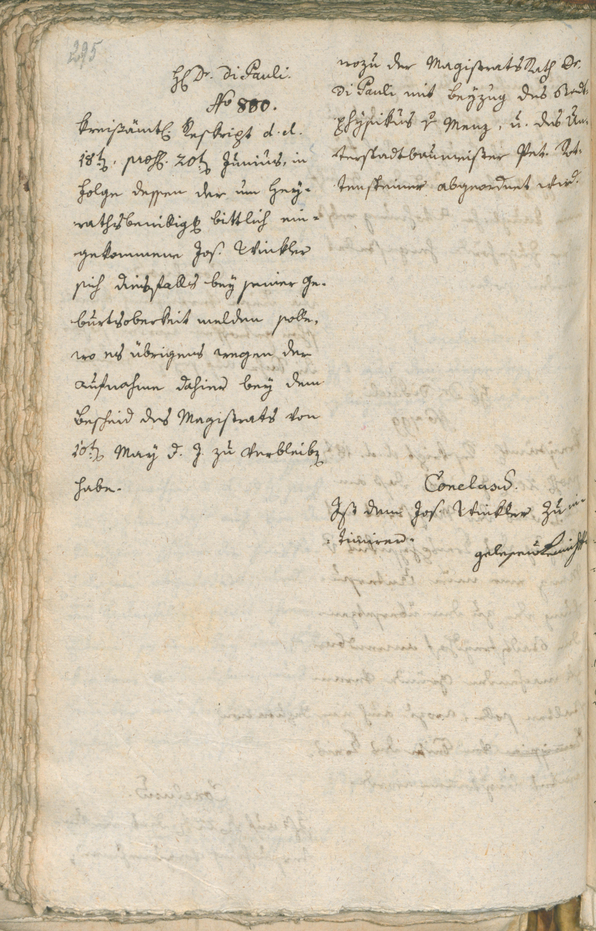 295
H. Dr. Di Pauli.
No 800.
Kreisämtl. Reskript d. d.
18t, praes. 20t Junius, in
Folge dessen der um Hey-
rathsbewillig bittlich ein-
gekommene Jos. Winkler
sich diesfalls bey seiner Ge-
burtsobrikeit melden solle,
wo es übrigens wegen der
Aufnahme dahier bey dem
Bescheid des Magistrats von
10t May d. J. zu verbleib
habe.
wozu der Magistrats Rath Dr.
Di Pauli mit Beyzug des Stadt
physikus v. Menz, u. des Un-
terstadtbaumeister Pet.
tensteiner abgeordnet wird.
Conclusū.
Ist dem Jos. Winkler zu in-
timiren.
gelesen